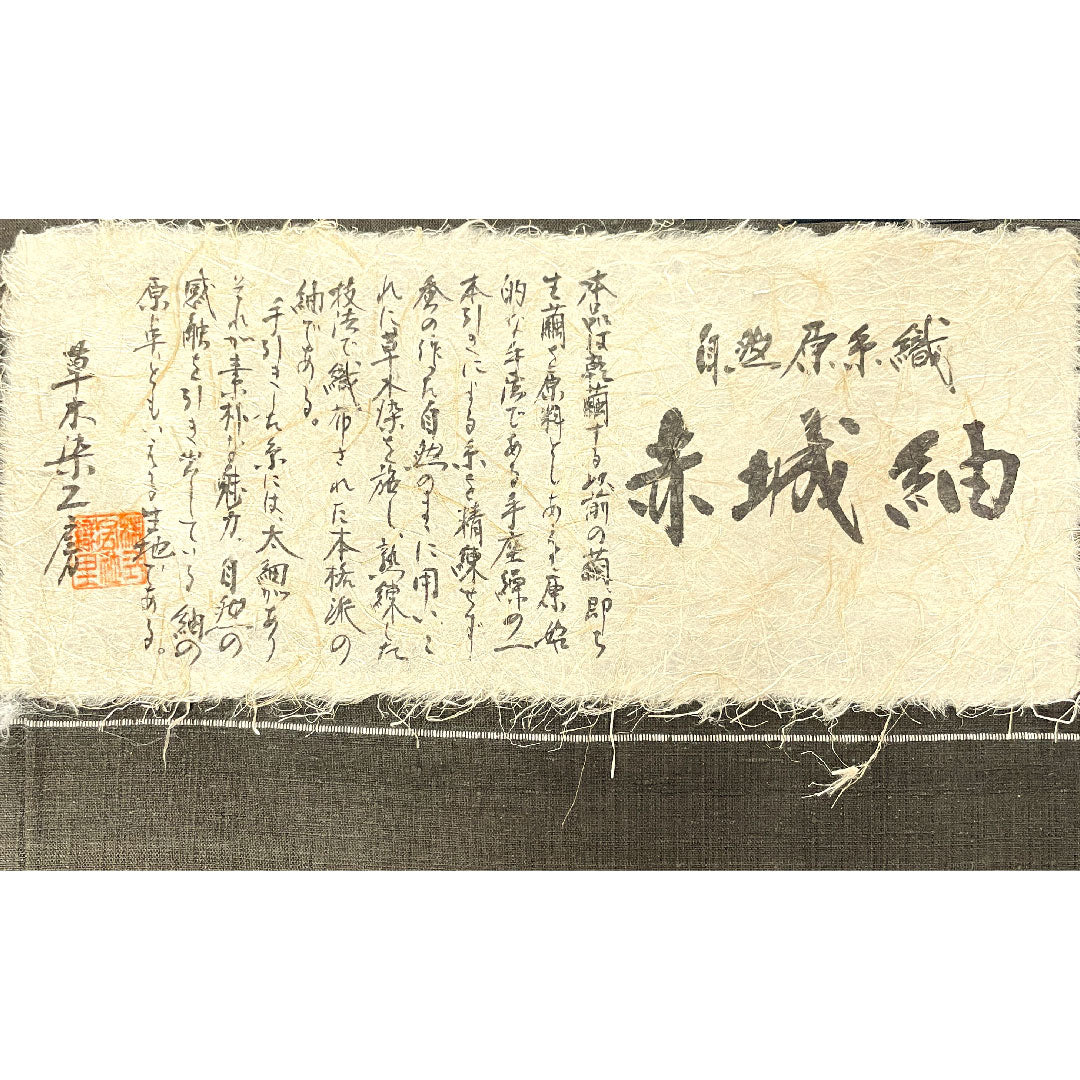 自然原糸織
赤城紬
本品は乾繭する以前の繭、即ち
生繭を原料としあくまで原始
的な手法である手座繰の一
本引きによる糸を精練せず
蚕の作った自然のままに用いこ
れに草木染を施し、熟練した
技法で、織布された本格派の
紬である。
手引きした糸には、太細があり
それが素朴な魅力、自然の
感触を引き出している紬の
原点ともいえる生地である。
草木染工房